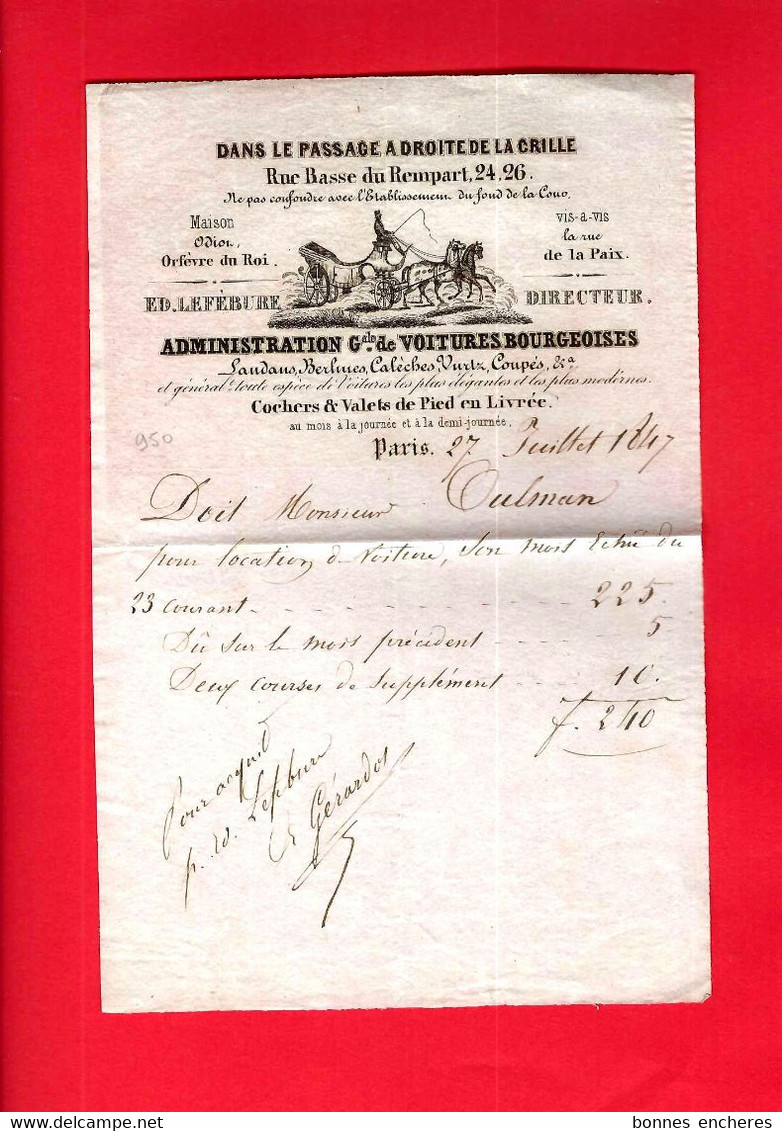 DANS LE PASSAGE A DROITE DE LA GRILLE
Rue Basse du Rempart, 24, 26.
Ne pas confondre avec l'Etablissement du fond de la Cour.
Maison
Odiot,
Orfèvre du Roi.
vis-à-vis
la rue
de la Paix.
ED. LEFÈBURE
DIRECTEUR.
ADMINISTRATION Gale de VOITURES BOURGEOISES
Landaus, Berlines, Calèches, Vurtz, Coupés, &a
et général.t toute espèce de Voitures les plus élégantes et les plus modernes.
Cochers & Valets de Pied en Livrée.
au mois à la journée et à la demi-journée.
950
Paris. 27 Juillet 1847
Doit Monsieur Oulman
pour location de Voiture, son mois Echu du
23 courant 225.
Dû sur le mois précédent 5
Deux courses de supplément 10.
f. 240
Pour acquit
p. Ed. Lefebure
Gérardot
bonnes encheres